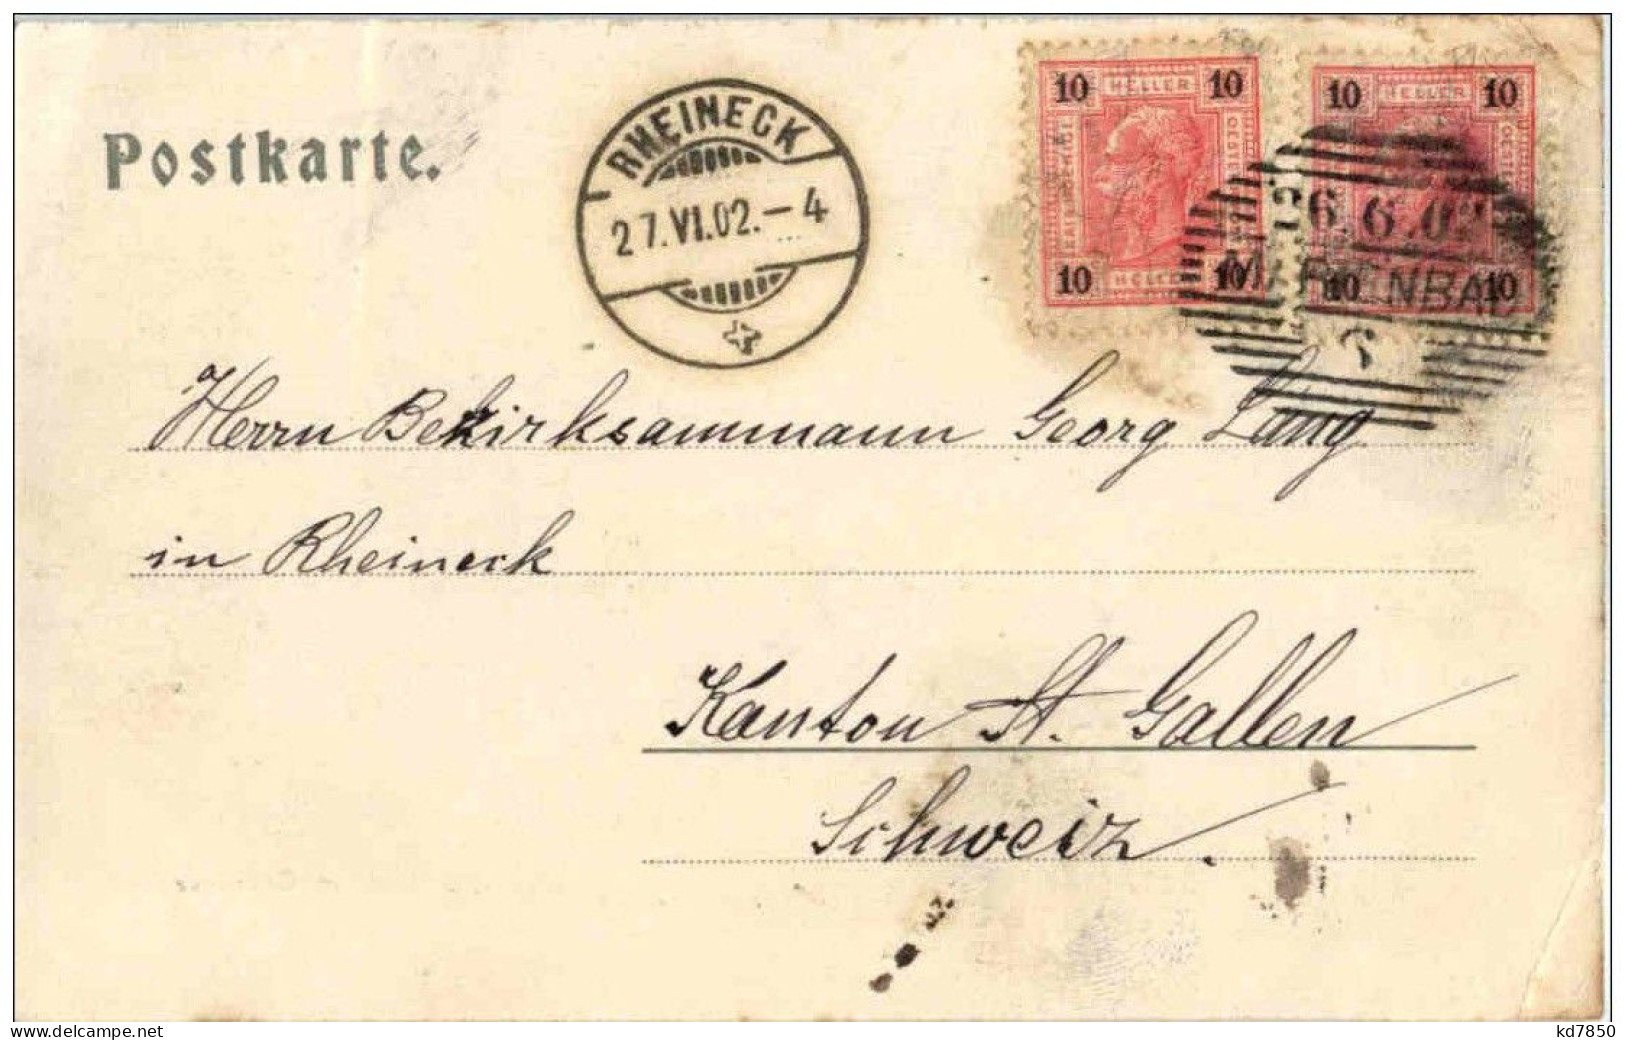 Postkarte.
RHEINECK
27.VI.02.–4
10 HELLER 10
10 HELLER 10
10 HELLER 10
10 10
6.6.02
MARIENBAD
Herrn Bezirksammann Georg Lang
in Rheineck
Kanton St. Gallen
Schweiz.
delcampe.net
kd7850